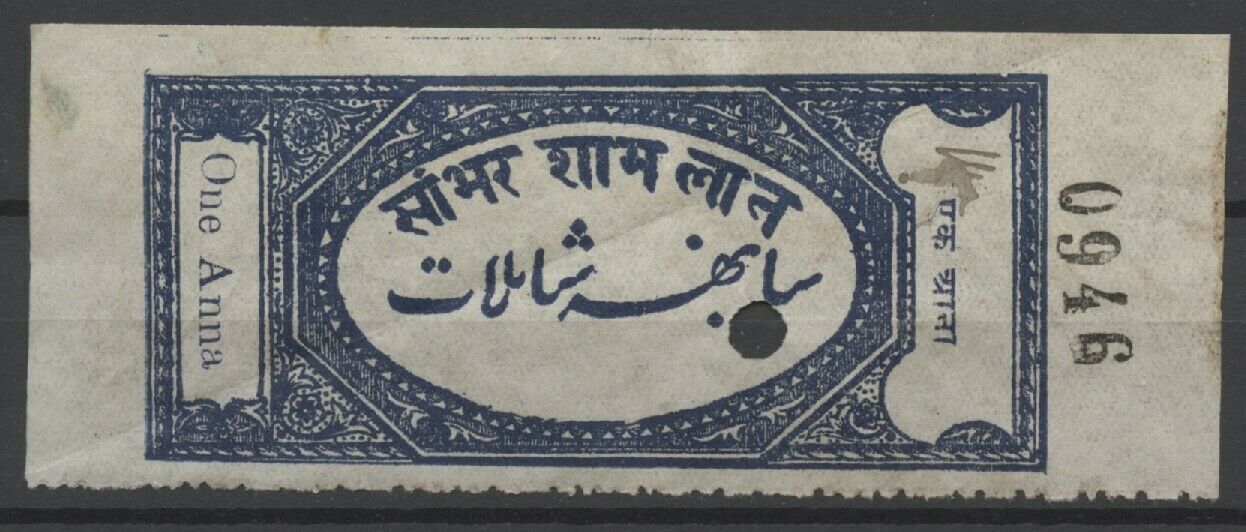 One Anna
सांभर शामलात
سانبھر شاملات
एक आना
0946